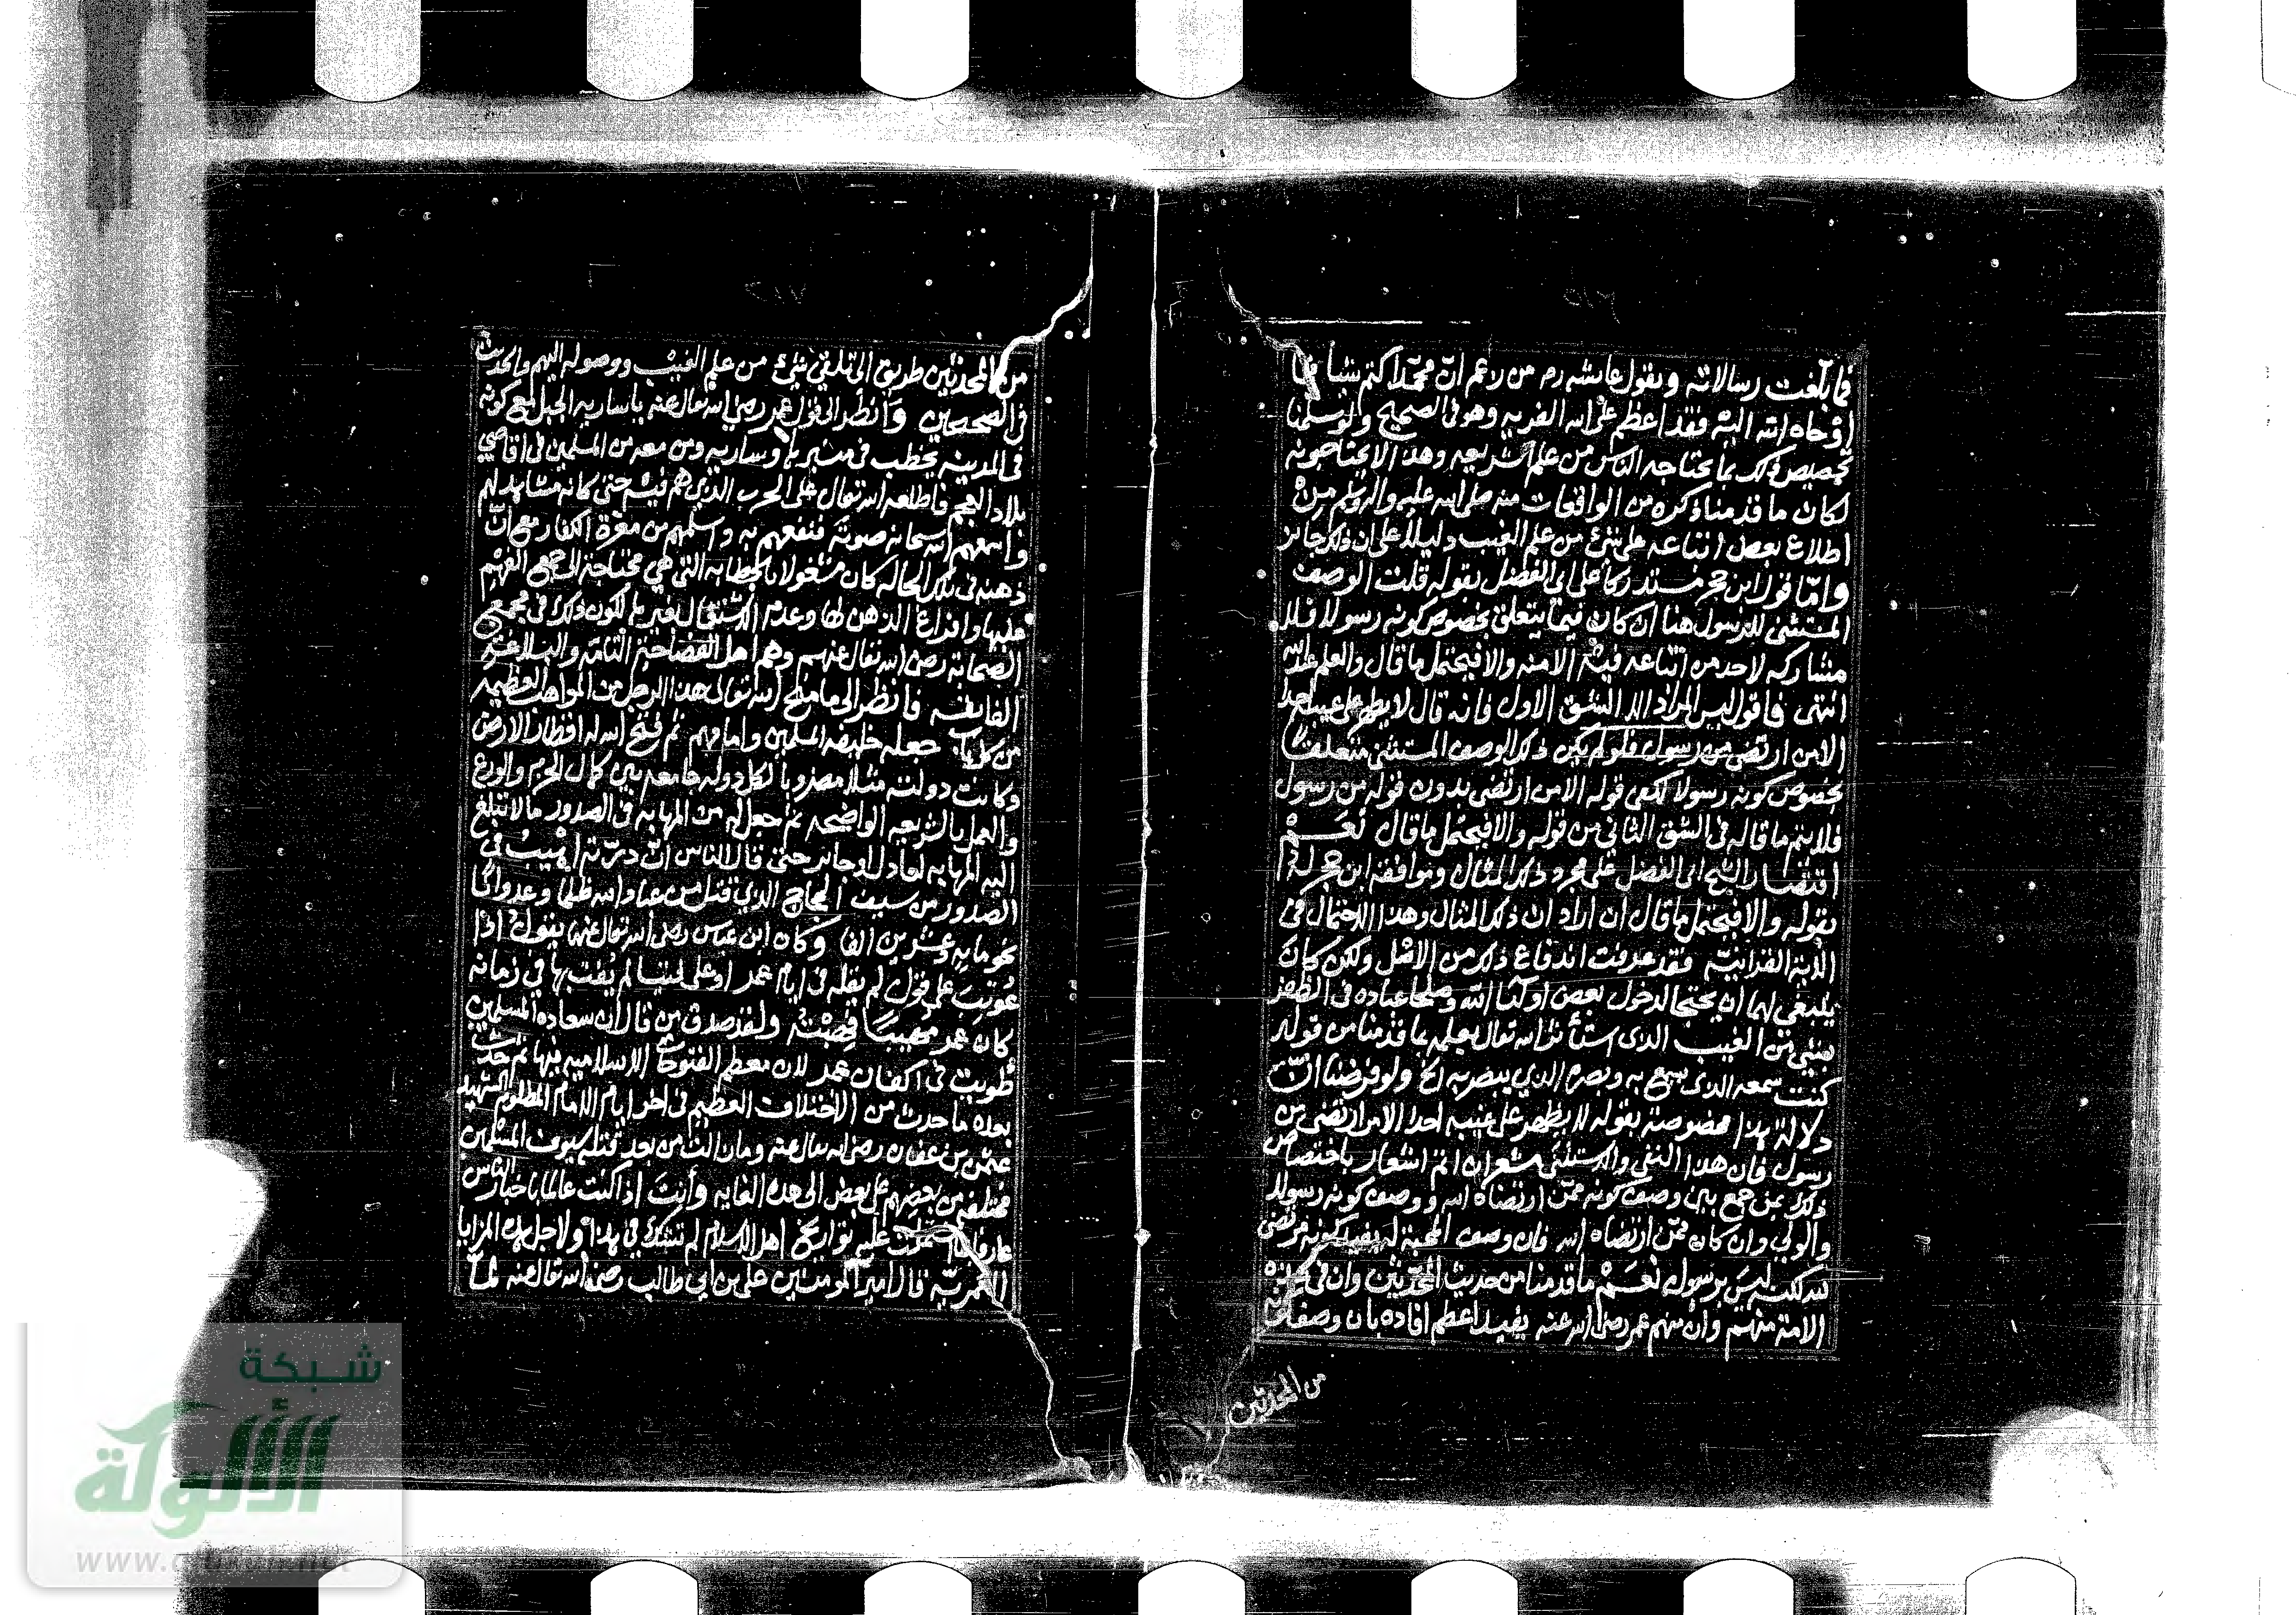 فما بلغت رسالاته وبقول عايشه رم من زعم ان محمدا كتم شيأ مما
اوحاه الله اليه فقد اعظم على الله الفريه وهو في الصحيح ولو سلمنا
تخصيص ذلك بما يحتاجه الناس من علم الشريعه وهذا لا يحتاجونه
لكان ما قدمنا ذكره من الواقعات منه صلى الله عليه واله وسلم من
اطلاع بعض اتباعه على شئ من علم الغيب دليلا على ان ذلك جائز
واما قول ابن حجر مستدركا على ابي الفضل بقوله قلت الوصف
المستثنى للرسول هنا ان كان فيما يتعلق بخصوص كونه رسولا فلا
مشاركه لاحد من اتباعه فيه الا منه والا فيحتمل ما قال والعلم عند الله
انتهى فاقول ليس المراد الا الشق الاول فانه قال لا يظهر على غيبه احدا
الا من ارتضى من رسول فلو لم يكن ذلك الوصف المستثنى متعلقا
بخصوص كونه رسولا لكفى قوله الا من ارتضى بدون قوله من رسول
فلا يتم ما قاله في الشق الثاني من قوله والا فيحتمل ما قال نعم
اقتصار الشيخ ابي الفضل على مجرد ذلك المثال وموافقة ابن حجر له
بقوله والا فيحتمل ما قال ان اراد ان ذلك المثال وهذا الاحتمال في
الاية القرانية فقد عرفت اندفاع ذلك من الاصل ولكن كان
ينبغي لهما ان يحتجا لدخول بعض اوليا الله وصلحا عباده في الظفر
بشي من الغيب الذي استأثر الله تعالى بعلمه بما قدمنا من قوله
كنت سمعه الذي يسمع به وبصره الذي يبصر به الخ ولو فرضنا ان
دلالة هذا مخصوصة بقوله لا يظهر على غيبه احدا الا من ارتضى من
رسول فان هذا النفي والاستثنى مشعران اتم اشعار باختصاص
ذلك بمن جمع بين وصف كونه ممن ارتضاه الله ووصف كونه رسولا
والولي وان كان ممن ارتضاه الله فان وصف المحبة له يفيد كونه مرتضى
لله لكنه ليس برسول نعم ما قدمنا من حديث المحدثين وان في هذه
الامة منهم وان منهم عمر رضي الله عنه يفيد اعظم افاده بان وصف
من المحدثين
من المحدثين طريق الى تلقي شئ من علم الغيب ووصوله اليهم والحديث
في الصحيحين وانظر الى قول عمر رضي الله تعالى عنه يا ساريه الجبل مع كونه
في المدينه يخطب في منبرها وساريه ومن معه من المسلمين في اقاصي
بلاد العجم فاطلعه الله تعالى على الحرب الذي هم فيه حتى كانه مشاهد لهم
واسمعهم الله سبحانه صوته فنفعهم به وسلمهم من معرة الكفار مع ان
ذهنه في تلك الحاله كان مشغولا بالخطابه التي هي محتاجة الى جمع الفهم
عليها وافراغ الذهن لها وعدم الاشتغال بغيرها لكون ذلك في مجمع
الصحابة رضي الله تعالى عنهم وهم اهل الفصاحة التامه والبلاغة
الفايقه فانظر الى ما منح الله تعالى هذا الرجل من المواهب العظيمه
جعله خليفه المسلمين وامامهم ثم فتح الله له اقطار الارض
وكانت دولته مثلا مضروبا لكل دوله جامعه بين كمال الحزم والورع
والعمل بالشريعه الواضحه ثم جعل له من المهابه في الصدور ما لا تبلغ
اليه المهابه لعادل ولا جاير حتى قال الناس ان درته اهيب في
الصدور من سيف الحجاج الذي قتل من عباد الله ظلما وعدوانا
نحو مايه وعشرين الفا وكان ابن عباس رضي الله تعالى عنهما يقول اذا
عوتب على قول لم يقله في ايام عمر او على فتيا لم يفت بها في زمانه
كان عمر مهيبا فهبته ولقد صدق من قال ان سعاده المسلمين
طويت في اكفان عمر لان معظم الفتوحات الاسلاميه فيها ثم حدث
بعده ما حدث من الاختلاف العظيم في اخر ايام الامام المظلوم الشهيد
عثمن بن عفان رضي الله تعالى عنه وما زال الناس من بعد قتله سيوف المسلمين
مختلفه من بعضهم على بعض الى هذه الغايه وأنت اذا كنت عالما باخبار الناس
عارفا بما اشتملت عليه تواريخ اهل الاسلام لم تشك في هذا ولاجل هذه المزايا
العمرية قال امير المومنين علي بن ابي طالب رضي الله تعالى عنه لما
شبكة
الألوكة
www.alukah.net